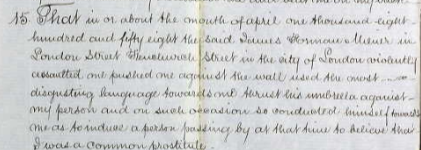 15. That in or about the month of april one thousand eight
hundred and fifty eight the said James Norman Merer in
London Street Fenchurch Street in the city of London violently
assaulted me pushed me against the wall used the most
disgusting language towards me thrust his umbrella against
my person and on such occasion so conducted himself towards
me as to induce a person passing by at that time to believe that
I was a common prostitute.